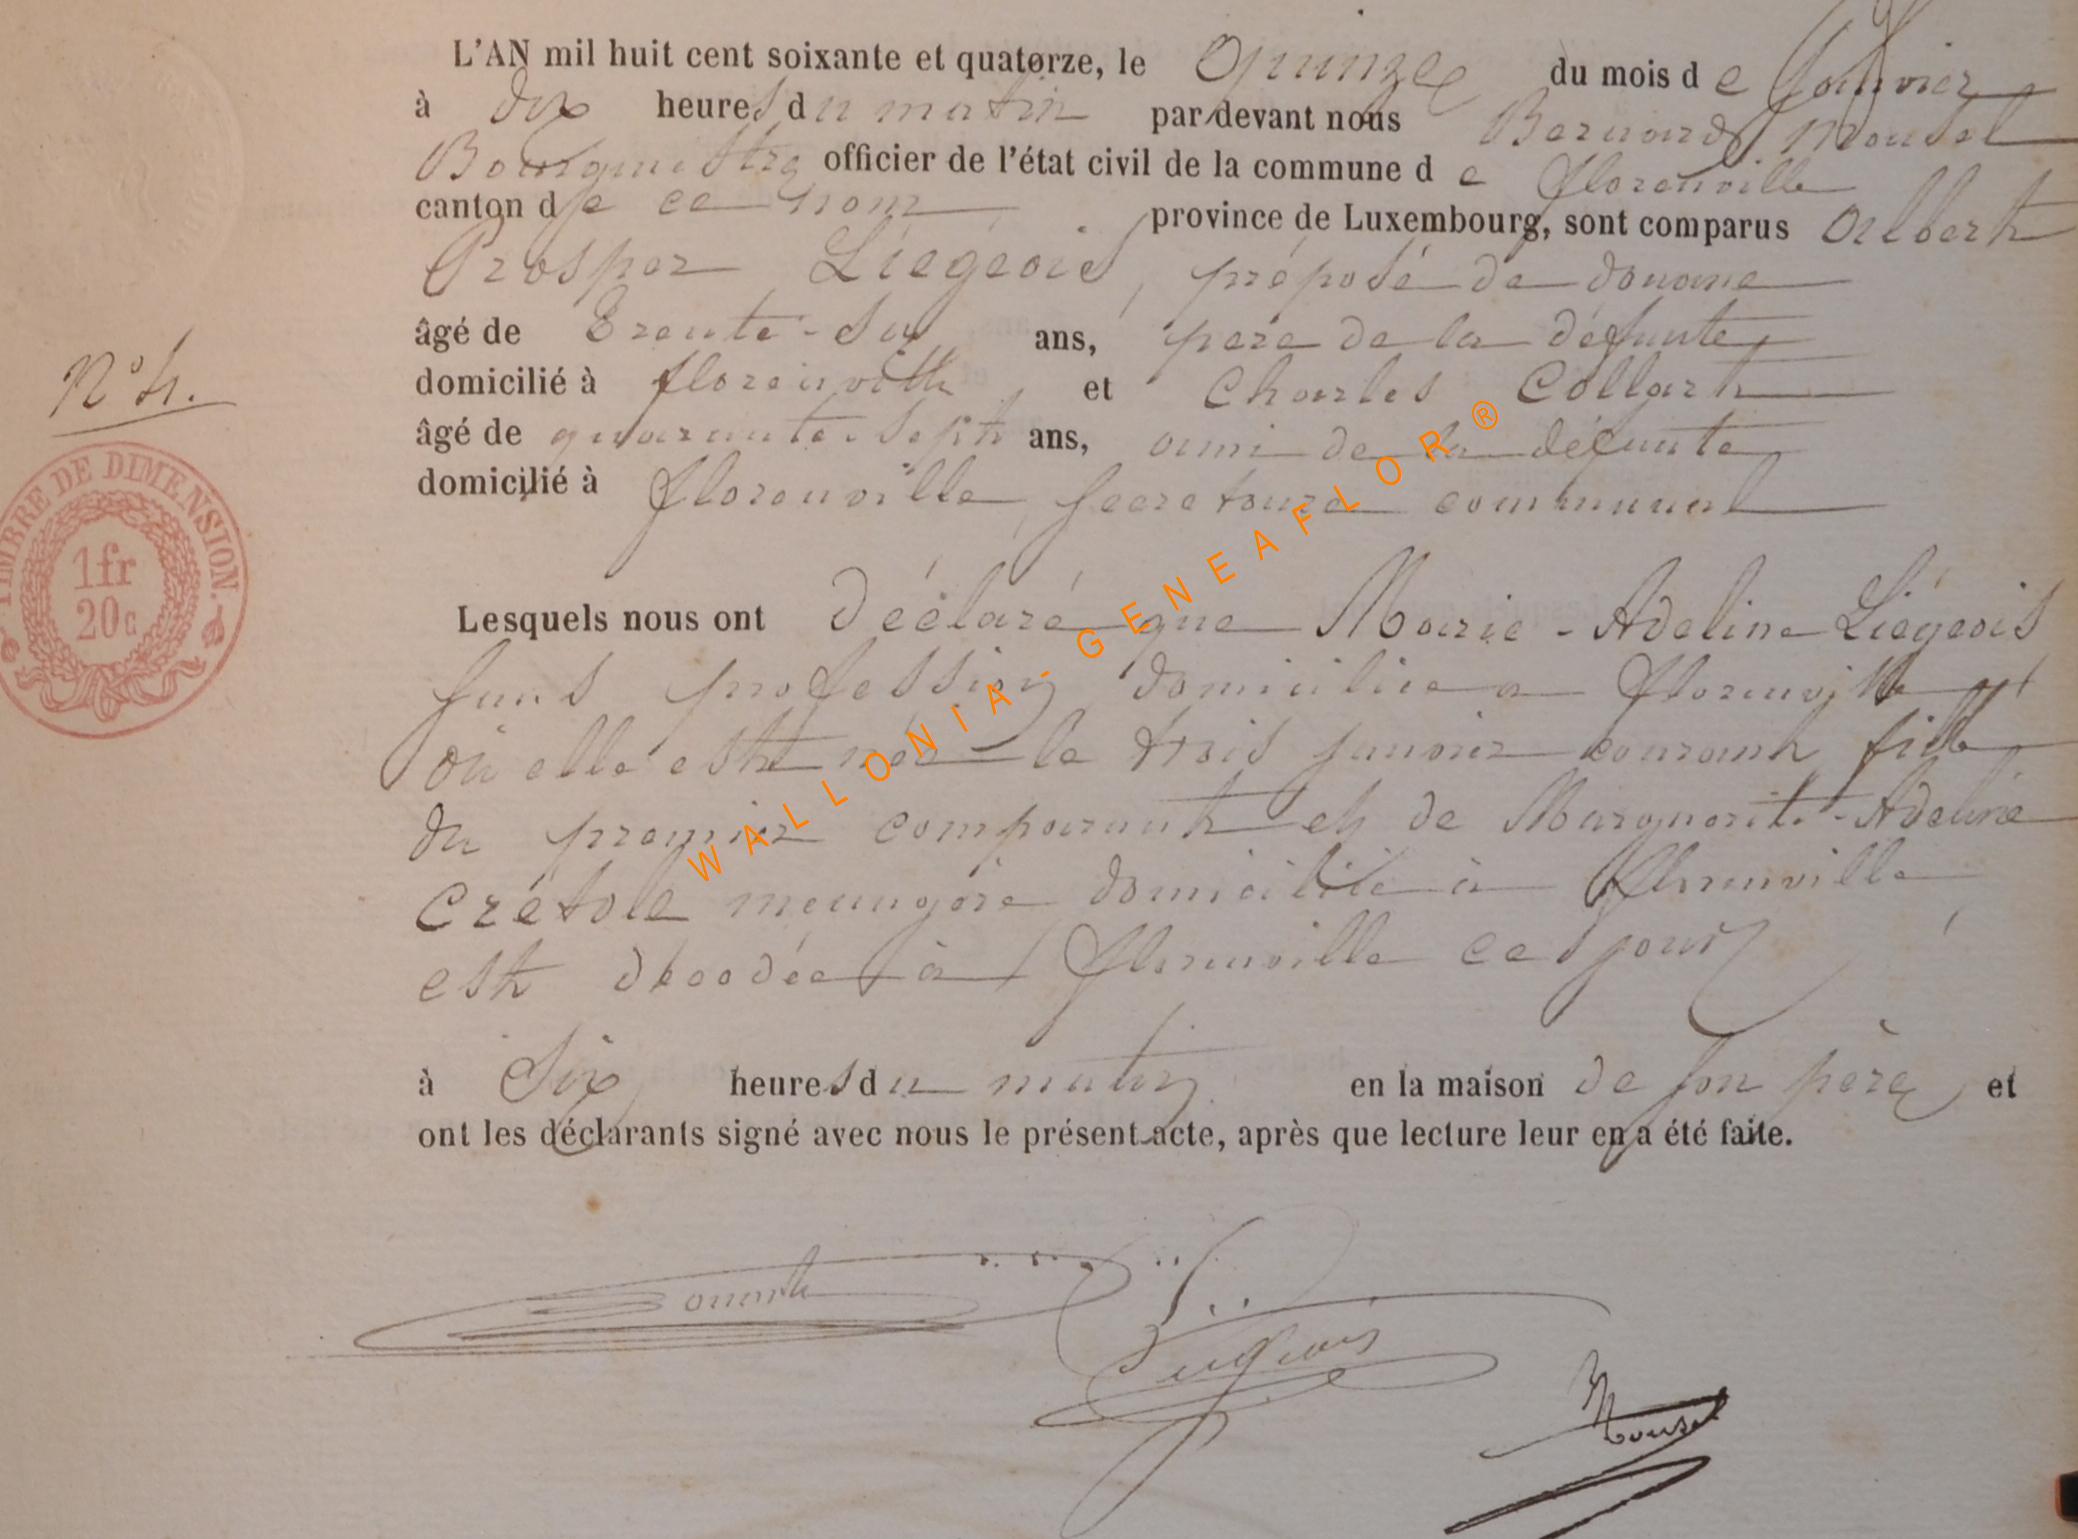 L'AN mil huit cent soixante et quatorze, le Quinze du mois de Janvier
à dix heures du matin par devant nous Bernard Mousel
Bourgmestre officier de l'état civil de la commune de Florenville
canton de ce nom province de Luxembourg, sont comparus Albert
Prosper Liégeois, préposé de douane
âgé de Trente-six ans, père de la défunte
domicilié à florenville et Charles Collart
N° 4.
âgé de quarante-sept ans, ami de la défunte
domicilié à florenville, secretaire communal
TIMBRE DE DIMENSION.
1fr
20c
Lesquels nous ont déclaré que Marie-Adeline Liégeois
sans profession domiciliée a florenville
où elle est née le trois janvier courant fille
du premier comparant et de Marguerite-Adeline
Crétole menagère domiciliée à florenville
est décédée à florenville ce jour
à Six heures du matin en la maison de son père et
ont les déclarants signé avec nous le présent acte, après que lecture leur en a été faite.
Liégeois
Mousel
WALLONIA-GENEAFLOR®